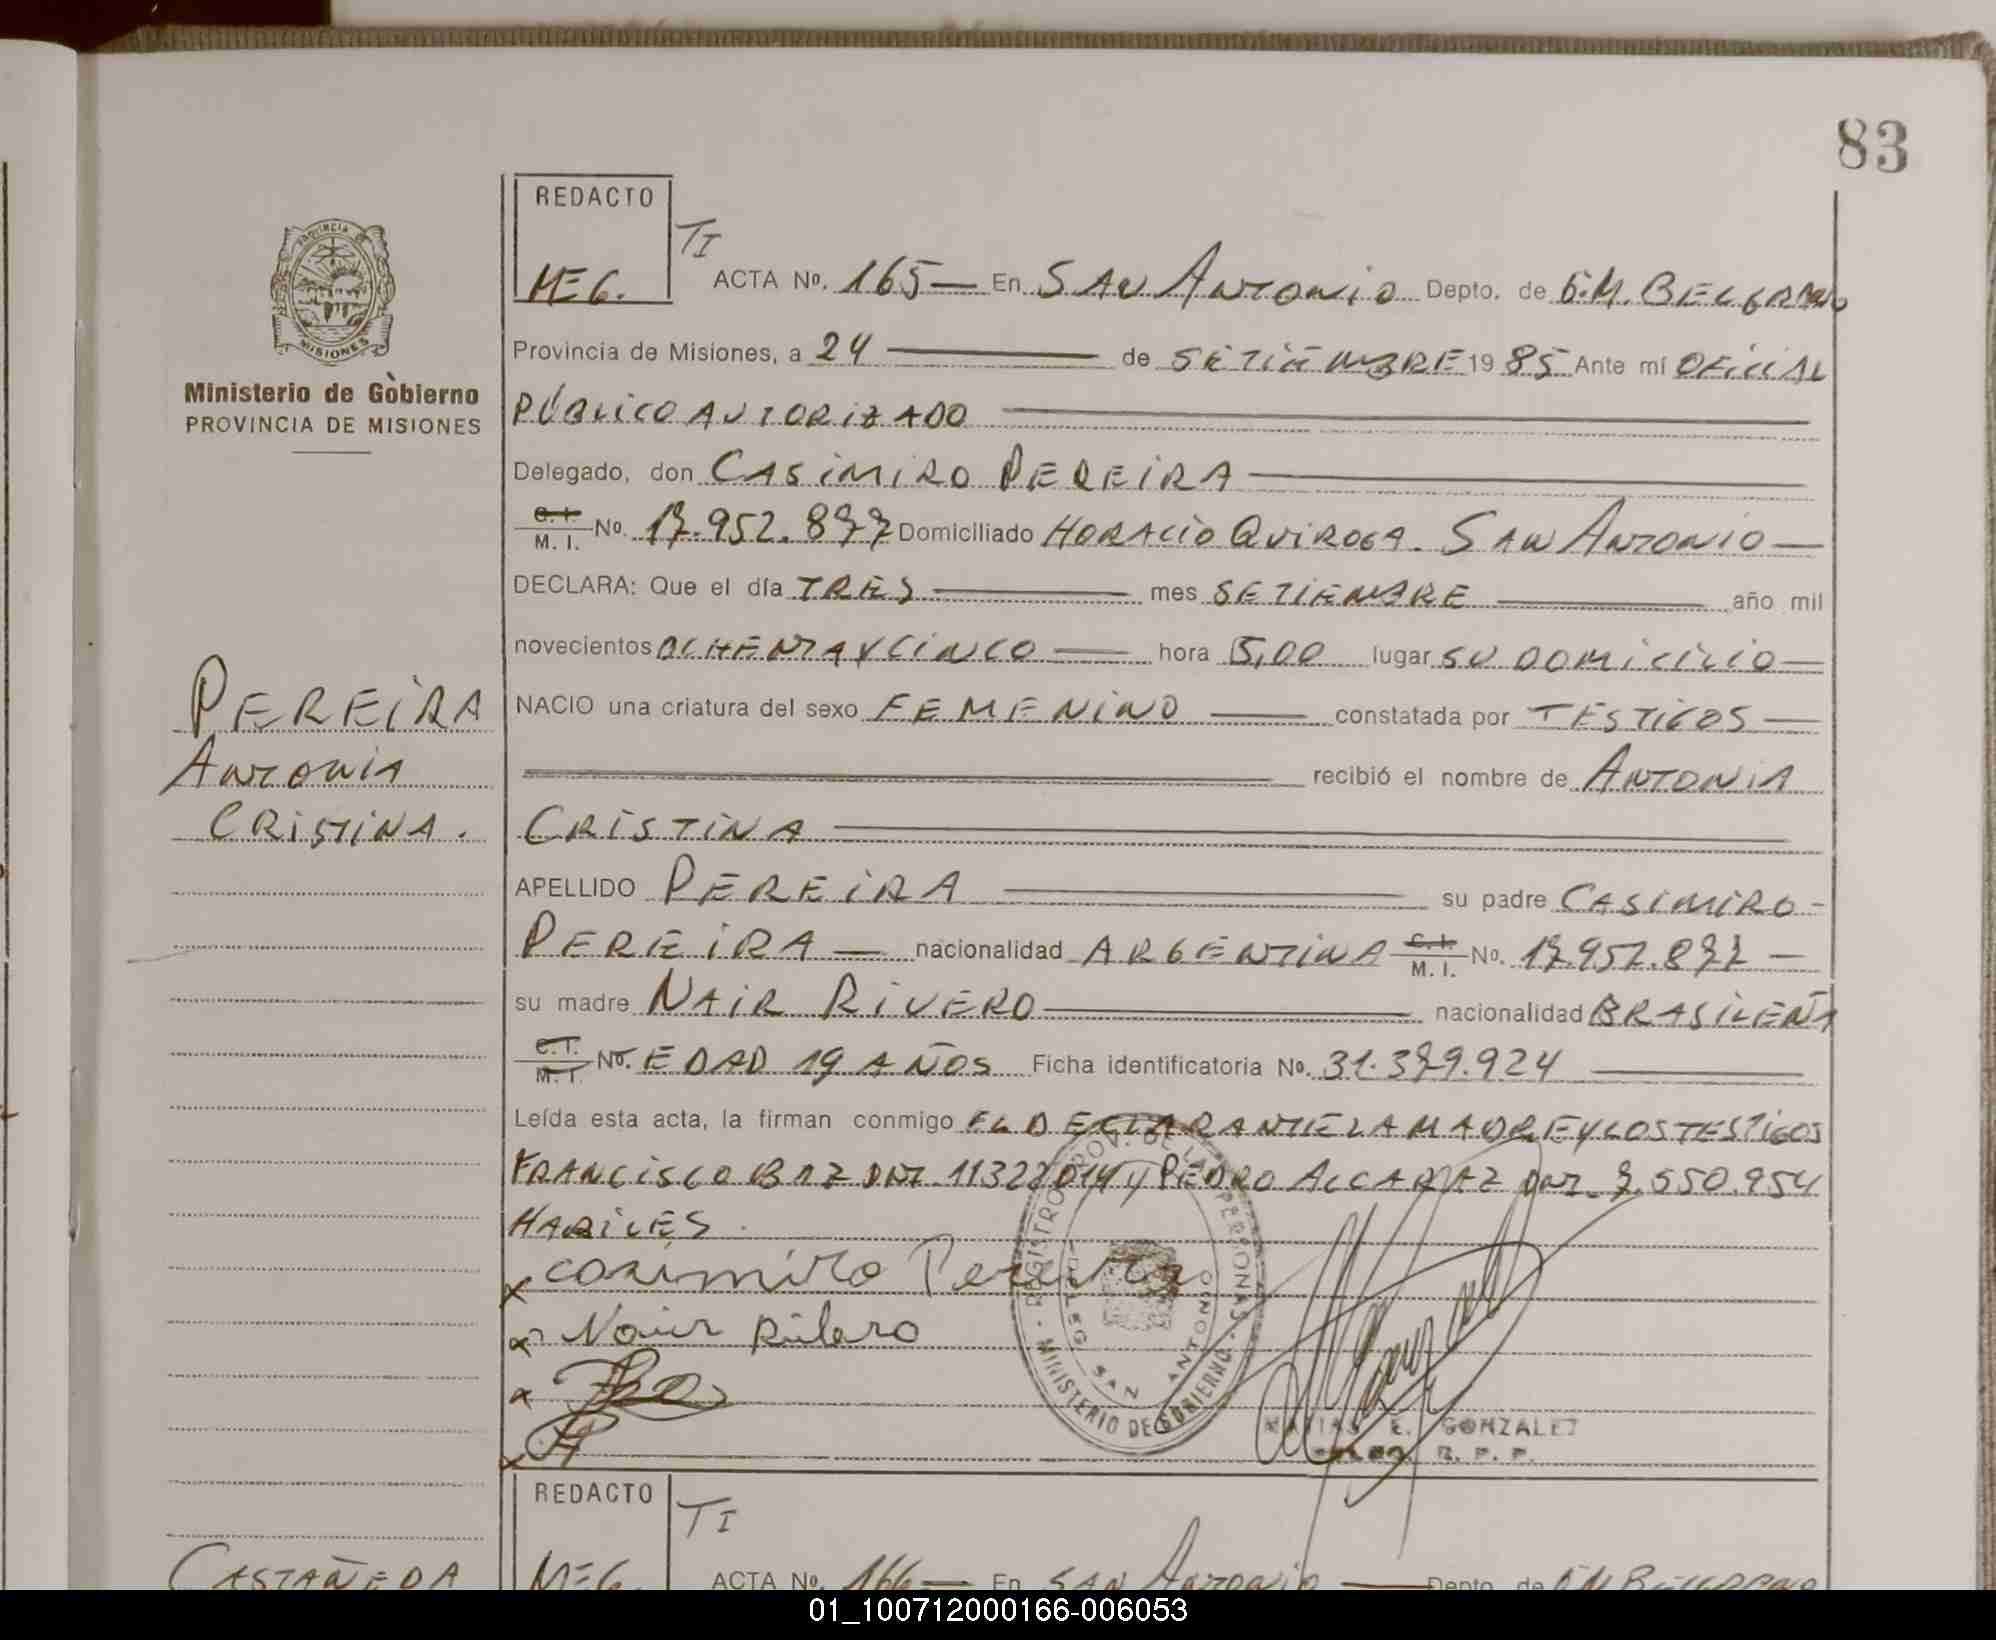 83
REDACTO
MEG.
TI
ACTA Nº. 165— En SAN ANTONIO Depto. de G.M. BELGRANO
Provincia de Misiones, a 24 —— de SETIEMBRE 19 85 Ante mí OFICIAL
PÚBLICO AUTORIZADO ——
Delegado, don CASIMIRO PEREIRA ——
C. I. / M. I. No. 17.952.877 Domiciliado HORACIO QUIROGA. SAN ANTONIO —
DECLARA: Que el día TRES —— mes SETIEMBRE —— año mil
novecientos OCHENTA Y CINCO — hora 5,00 lugar SU DOMICILIO —
NACIO una criatura del sexo FEMENINO —— constatada por TESTIGOS —
—— recibió el nombre de ANTONIA
CRISTINA ——
APELLIDO PEREIRA —— su padre CASIMIRO -
PEREIRA — nacionalidad ARGENTINA C. I. / M. I. No. 17.952.877 —
su madre NAIR RIVERO —— nacionalidad BRASILEÑA
C. I. / M. I. No. EDAD 19 AÑOS Ficha identificatoria No. 31.379.924 ——
Leída esta acta, la firman conmigo EL DECLARANTE LA MADRE Y LOS TESTIGOS
FRANCISCO BAZ DNI. 11322014 y PEDRO ALCARAZ DNI. 7.550.954
HABILES.
x casimiro Pereira
x Nair Ribero
x
x
PROVINCIA DE MISIONES
Ministerio de Gobierno
PROVINCIA DE MISIONES
PEREIRA
ANTONIA
CRISTINA.
REGISTRO PROV. DE LAS PERSONAS
MINISTERIO DE GOBIERNO
DELEG. SAN ANTONIO
MATIAS E. GONZALEZ
R. P. P.
REDACTO
MEG.
TI
CASTAÑEDA
ACTA Nº. 166— En SAN ANTONIO — Depto. de G.M. BELGRANO
01_100712000166-006053